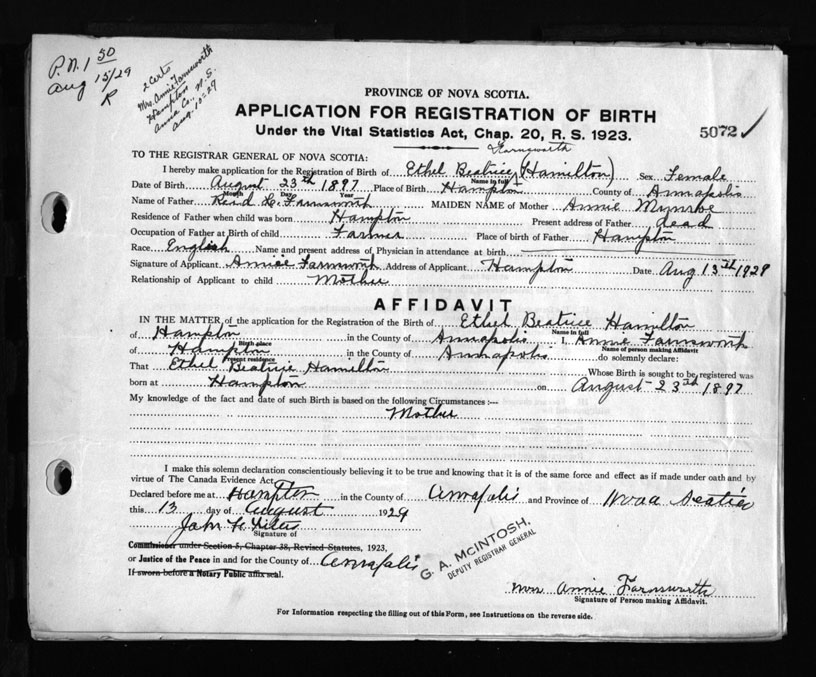 P.N. 1 50
Aug 15/29
R
2 Certs
Mrs. Annie Farnsworth
Hampton
Anna Co., N.S.
Aug. 10-29
PROVINCE OF NOVA SCOTIA.
APPLICATION FOR REGISTRATION OF BIRTH
Under the Vital Statistics Act, Chap. 20, R. S. 1923.
5072
Farnsworth
TO THE REGISTRAR GENERAL OF NOVA SCOTIA:
I hereby make application for the Registration of Birth of Ethel Beatrice (Hamilton) Sex Female
Name in full
Date of Birth August 23th 1897 Place of Birth Hampton County of Annapolis
Month Day Year
Name of Father L. Farnsworth MAIDEN NAME of Mother Annie Munroe
Residence of Father when child was born Hampton Present address of Father dead
Occupation of Father at Birth of child Farmer Place of birth of Father Hampton
Race English Name and present address of Physician in attendance at birth
Signature of Applicant Annie Farnsworth Address of Applicant Hampton Date Aug 13th 1929
Relationship of Applicant to child Mother
AFFIDAVIT
IN THE MATTER of the application for the Registration of the Birth of Ethel Beatrice Hamilton
Name in full
of Hampton in the County of Annapolis I, Annie Farnsworth
Birth place Name of person making Affidavit
of Hampton in the County of Annapolis do solemnly declare:
Present residence
That Ethel Beatrice Hamilton Whose Birth is sought to be registered was
born at Hampton on August 23th 1897
My knowledge of the fact and date of such Birth is based on the following Circumstances :—
Mother
I make this solemn declaration conscientiously believing it to be true and knowing that it is of the same force and effect as if made under oath and by
virtue of The Canada Evidence Act.
Declared before me at Hampton in the County of Annapolis and Province of Nova Scotia
this 13 day of August 1929
John H.
Signature of
Commissioner under Section 5, Chapter 38, Revised Statutes, 1923,
or Justice of the Peace in and for the County of Annapolis
If sworn before a Notary Public affix seal.
G. A. McINTOSH,
DEPUTY REGISTRAR GENERAL
Mrs Annie Farnsworth
Signature of Person making Affidavit.
For Information respecting the filling out of this Form, see Instructions on the reverse side.